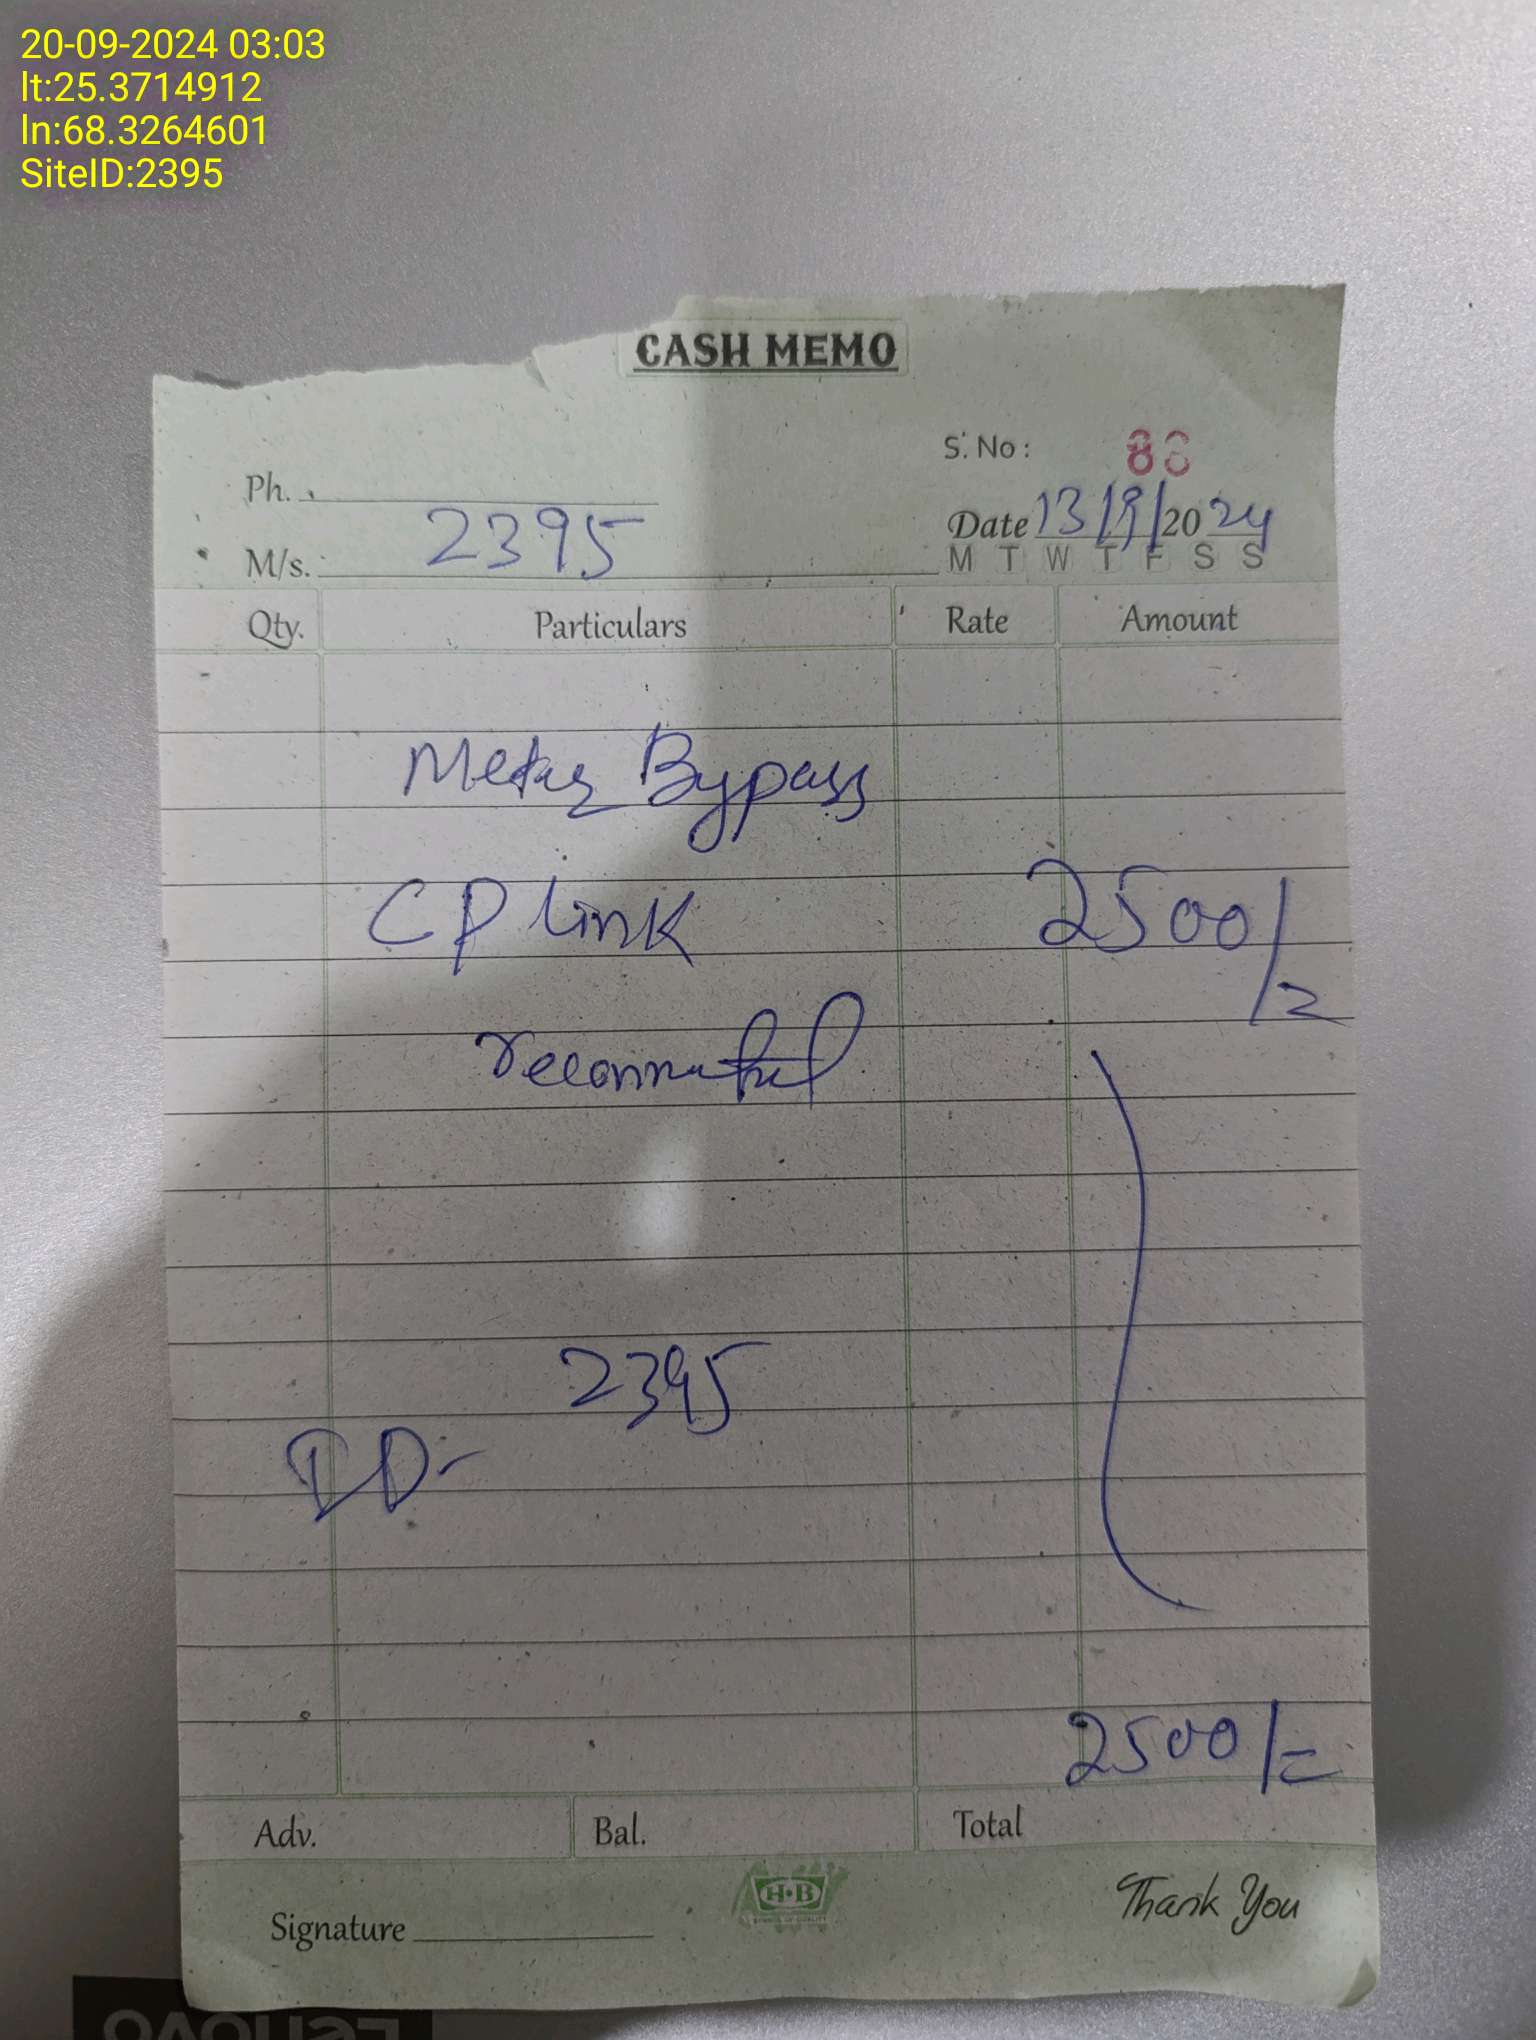 20-09-2024 03:03
lt:25.3714912
ln:68.3264601
SiteID:2395
CASH MEMO
S. No : 88
Ph.
Date 13/9/2024
M/s. 2395
M T W T F S S
Qty. Particulars Rate Amount
Meter Bypass
CP link 2500/=
reconnected
2395
ID-
2500/=
Adv. Bal. Total
H·B
Signature
Thank You
Lenovo